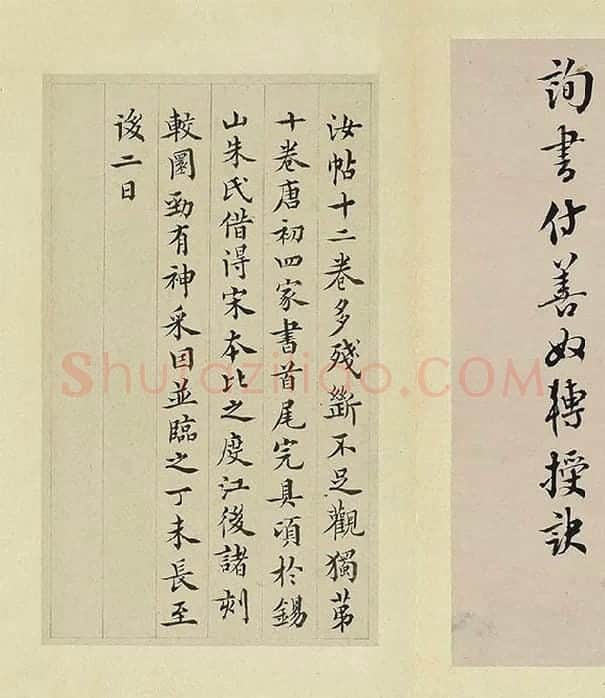 詢書付善奴轉授訣
汝帖十二卷多殘斷不足觀獨苐
十卷唐初四家書首尾完具頃於錫
山朱氏借得宋本比之度江後諸刻
較圜勁有神采因並臨之丁未長至
後二日
Shufaziliao.COM